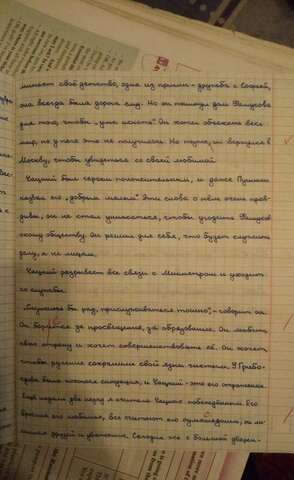 минает своё детство, одна из причин - дружба с Софьей,
она всегда была дорога ему. Но он покинул дом Фамусова
для того, чтобы „ума искать“. Он хотел объехать весь
мир, но у него это не получилось. Но тут же, он вернулся в
Москву, чтобы увидеться со своей любимой.
Чацкий был героем положительным, и даже Пушкин
назвал его „добрым малым“. Эти слова о нём очень прав-
дивы, он не стал унижаться, чтобы угодить Фамусов
скому обществу. Он решил для себя, что будет служить
делу, а не лицам.
Чацкий разрывает все связи с Министром и уходит
со службы.
„Служить бы рад, прислуживаться тошно“, - говорит он.
Он борется за просвещение, за образование. Он любит
свою страну и хочет совершенствовать её. Он хочет
чтобы русские сохранили свой язык чистым. У Грибо-
едова была похожая ситуация, и Чацкий - это его отражение.
Ещё недели две назад я считала Чацкого победителем. Его
бросила его любимая, все считают его сумасшедшим, он ли-
шился друзей и уважения. Сегодня же с большой уверен-